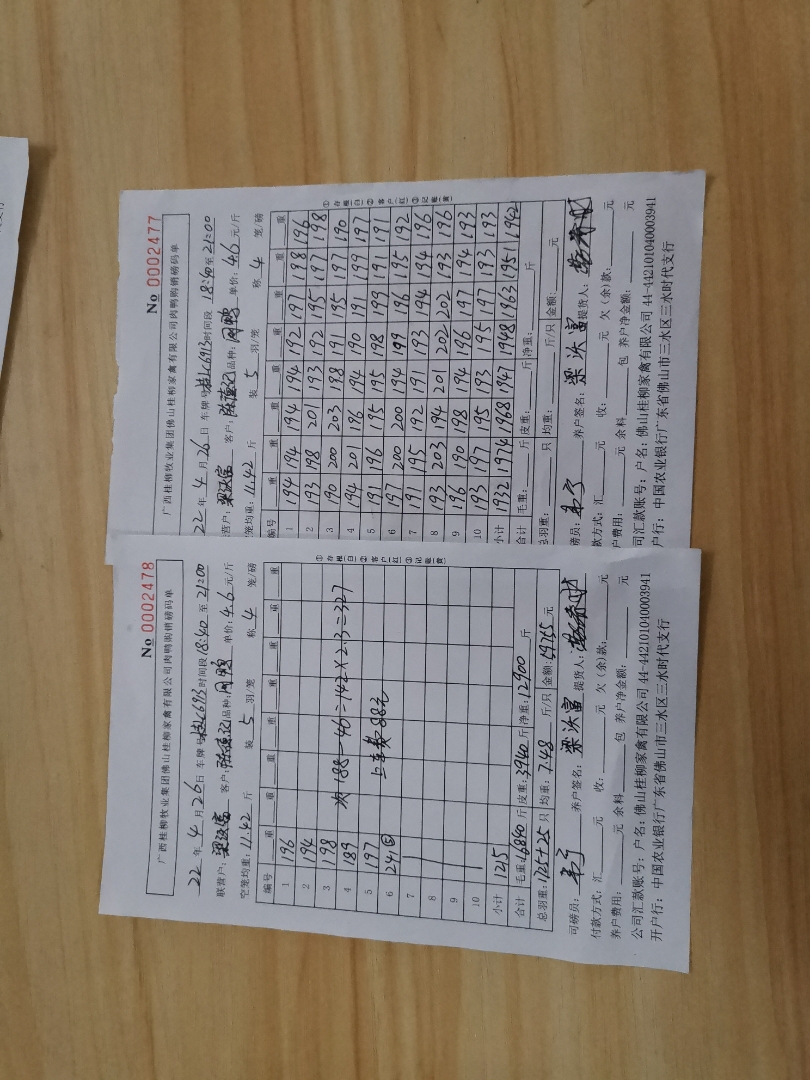 No 0002477
广西桂柳牧业集团佛山桂柳家禽有限公司肉鸭购销磅码单
22 年 4 月 26 日 车牌号: 桂LC6913 时间段 18:40 至 21:00
营户: 梁洪富 客户: 品种: 单价: 4.6 元/斤
笼均重: 11.42 斤 装 5 羽/笼 称 4 笼/磅
编号 重 重 重 重 重 重 重 重
1 194 194 194 194 192 197 198 196
2 193 198 201 193 192 195 197 198
3 190 200 203 198 191 195 197 190
4 194 201 196 194 190 191 199 197
5 191 196 195 195 198 199 191 191
6 197 200 200 194 199 196 195 192
7 191 195 192 191 193 194 194 196
8 193 203 194 201 202 202 193 196
9 196 190 198 194 196 197 194 193
10 193 197 195 193 195 197 193 193
小计 1932 1974 1968 1947 1948 1963 1951 1942
合计 毛重: 斤 皮重: 斤 净重: 斤
总羽重: 只 均重: 斤/只 金额: 元
①存根(白) ②客户(红) ③记账(黄)
磅员: 养户签名: 梁洪富 提货人:
款方式: 汇 元 收: 元 欠(余)款: 元
户费用: 元 余料 包 养户净金额: 元
司汇款账号: 户名: 佛山桂柳家禽有限公司 44-442101040003941
户行: 中国农业银行广东省佛山市三水区三水时代支行
No 0002478
广西桂柳牧业集团佛山桂柳家禽有限公司肉鸭购销磅码单
22 年 4 月 26 日 车牌号: 桂LC6913 时间段 18:40 至 21:00
联营户: 梁洪富 客户: 品种: 单价: 4.6 元/斤
空笼均重: 11.42 斤 装 5 羽/笼 称 4 笼/磅
编号 重 重 重 重 重 重 重 重
1 196
2 194
3 198
4 189 次 188-46=142×2.3=327
5 197
6 241 上车费 88元
7
8
9
10
小计 1215
合计 毛重: 16840 斤 皮重: 3940 斤 净重: 12900 斤
总羽重: 1725+25 只 均重: 7.48 斤/只 金额: 元
①存根(白) ②客户(红) ③记账(黄)
司磅员: 养户签名: 梁洪富 提货人:
付款方式: 汇 元 收: 元 欠(余)款: 元
养户费用: 元 余料 包 养户净金额: 元
公司汇款账号: 户名: 佛山桂柳家禽有限公司 44-442101040003941
开户行: 中国农业银行广东省佛山市三水区三水时代支行